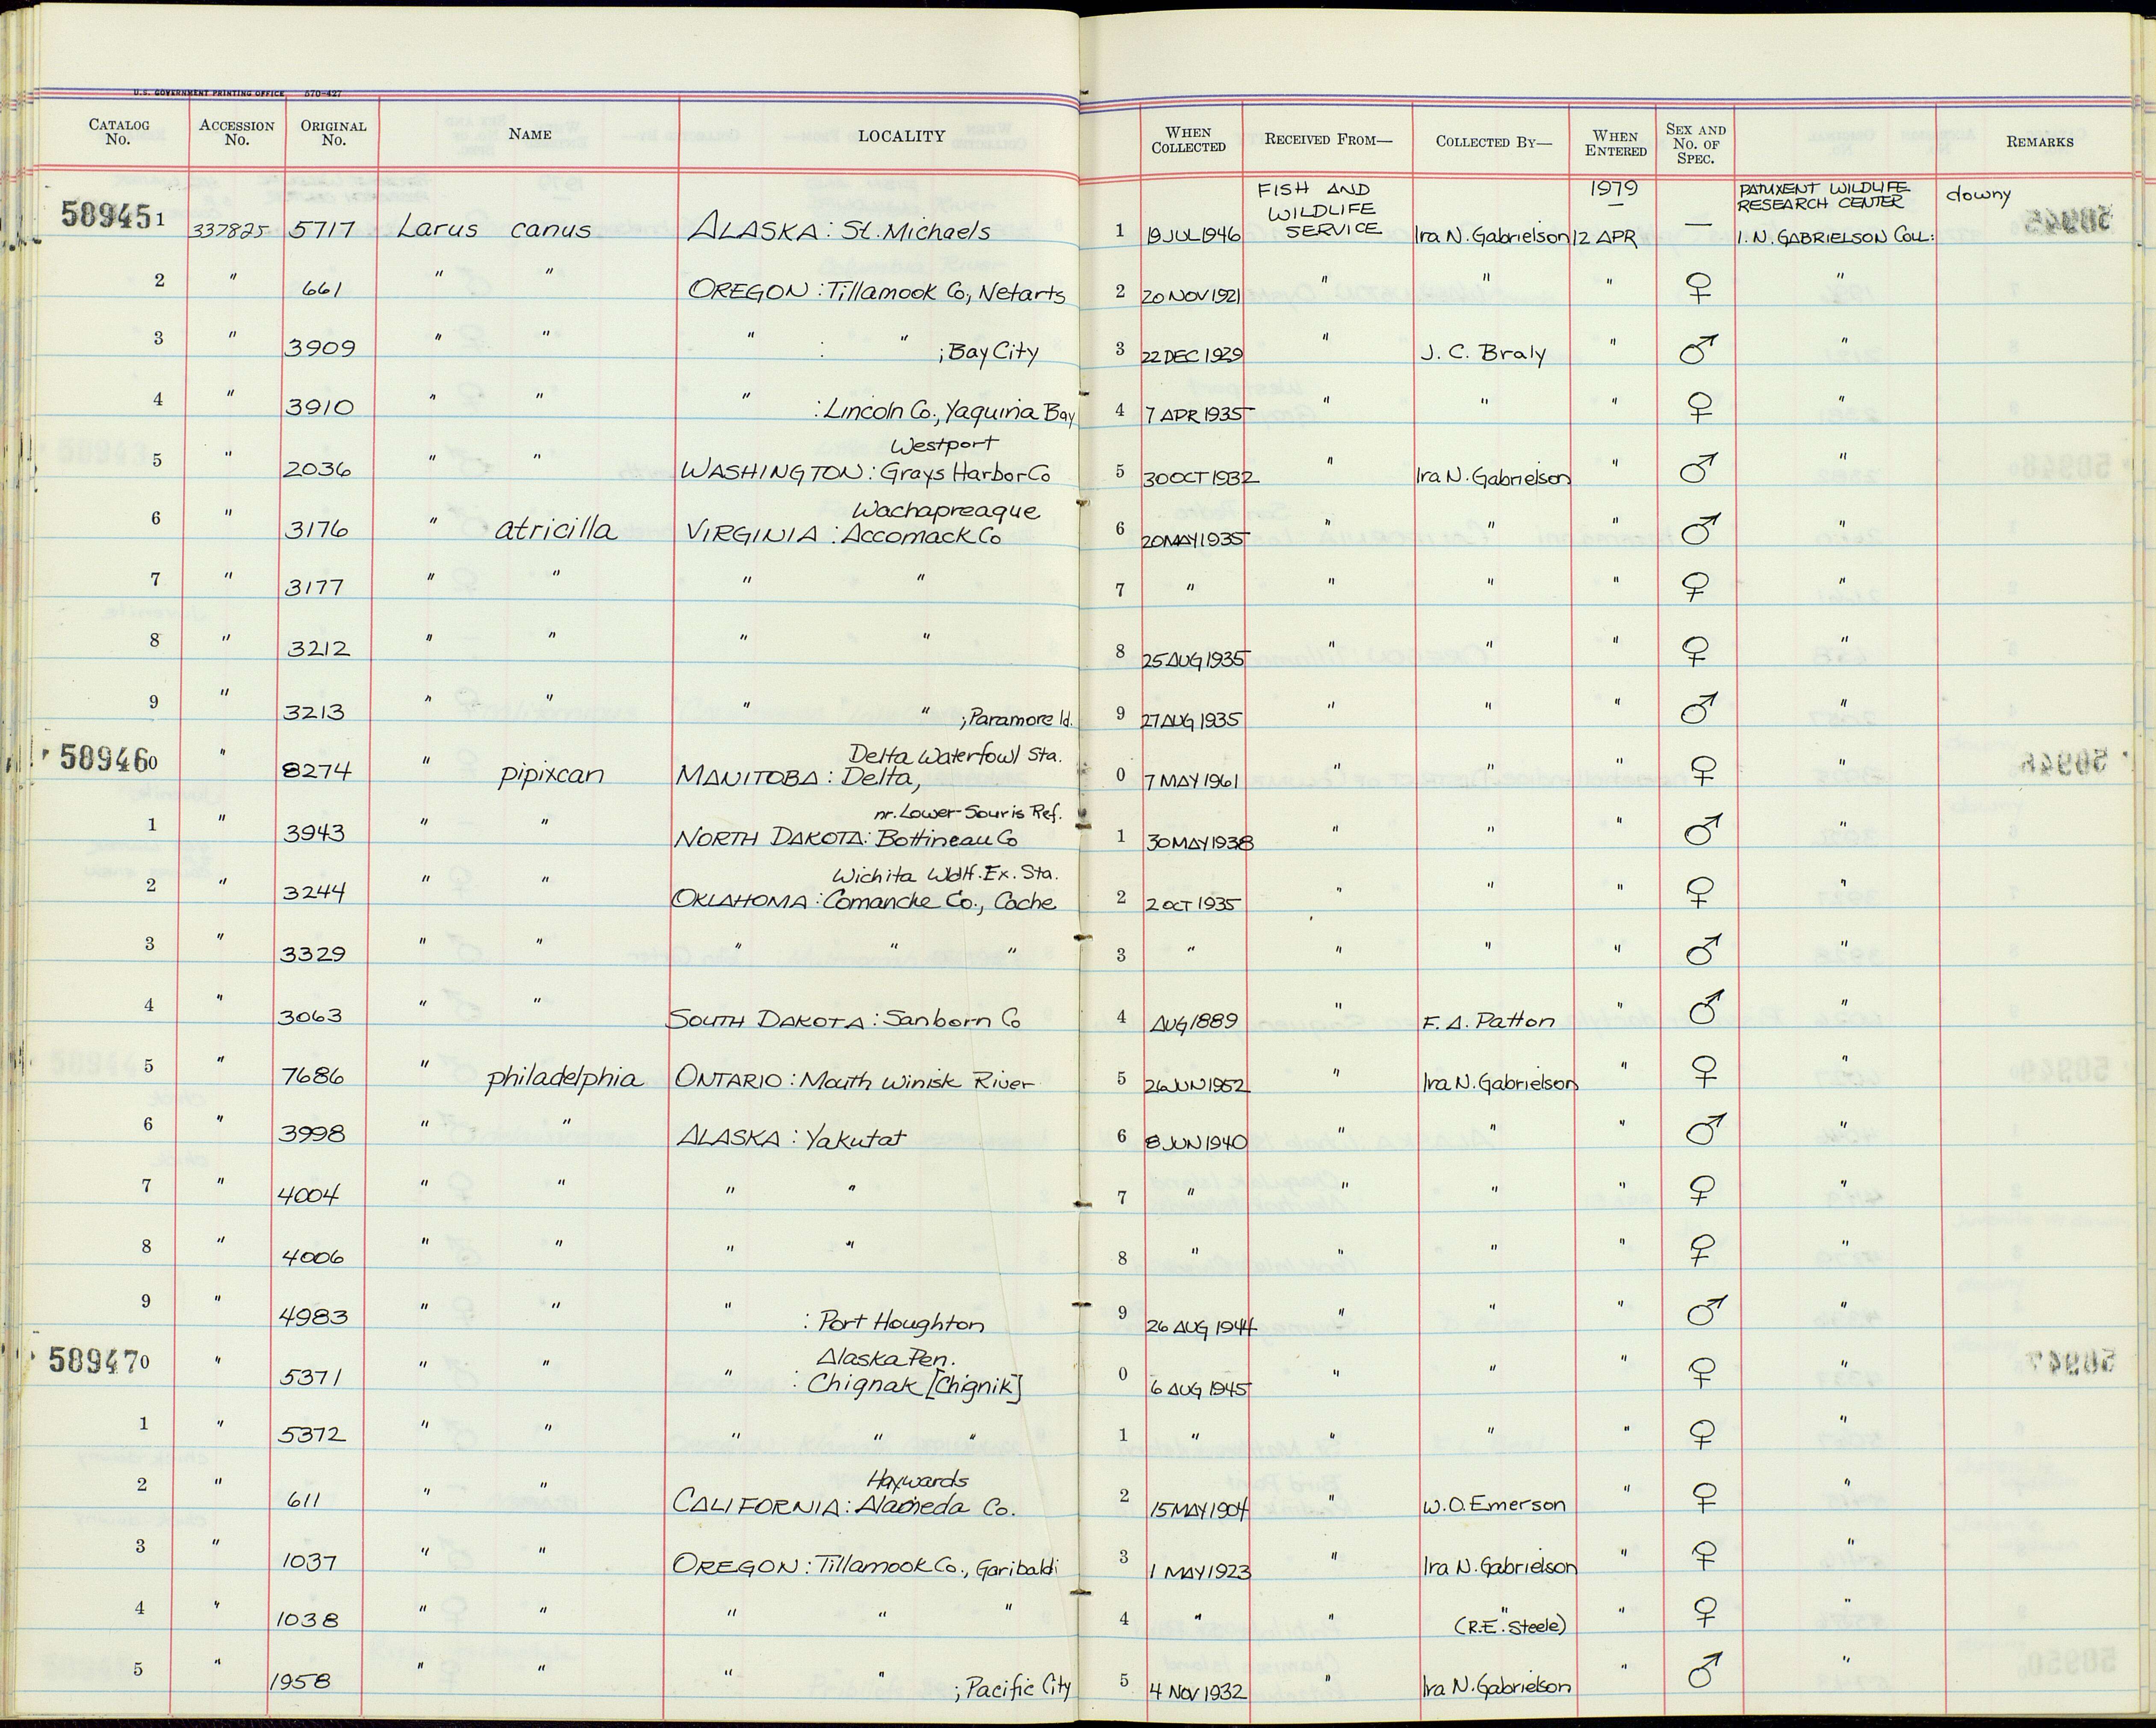 U.S. GOVERNMENT PRINTING OFFICE 570-427
CATALOG No. ACCESSION No. ORIGINAL No. NAME LOCALITY WHEN COLLECTED RECEIVED FROM— COLLECTED BY— WHEN ENTERED SEX AND No. OF SPEC. REMARKS
589451 337825 5717 Larus canus ALASKA: St. Michaels 1 19 JUL 1946 FISH AND WILDLIFE SERVICE Ira N. Gabrielson 1979 12 APR — PATUXENT WILDLIFE RESEARCH CENTER I. N. GABRIELSON COLL. downy
2 " 661 " " OREGON: Tillamook Co, Netarts 2 20 NOV 1921 " " " ♀ "
3 " 3909 " " " : " ; Bay City 3 22 DEC 1929 " J. C. Braly " ♂ "
4 " 3910 " " " : Lincoln Co., Yaquina Bay 4 7 APR 1935 " " " ♀ "
5 " 2036 " " WASHINGTON: Grays Harbor Co Westport 5 30 OCT 1932 " Ira N. Gabrielson " ♂ "
6 " 3176 " atricilla VIRGINIA: Accomack Co Wachapreaque 6 20 MAY 1935 " " " ♂ "
7 " 3177 " " " " 7 " " " " ♀ "
8 " 3212 " " " " 8 25 AUG 1935 " " " ♀ "
9 " 3213 " " " " ; Paramore Id. 9 27 AUG 1935 " " " ♂ "
589460 " 8274 " pipixcan MANITOBA: Delta, Delta Waterfowl Sta. 0 7 MAY 1961 " " " ♀ "
1 " 3943 " " NORTH DAKOTA: Bottineau Co nr. Lower Souris Ref. 1 30 MAY 1938 " " " ♂ "
2 " 3244 " " OKLAHOMA: Comanche Co., Cache Wichita Wdlf. Ex. Sta. 2 2 OCT 1935 " " " ♀ "
3 " 3329 " " " " " 3 " " " " ♂ "
4 " 3063 " " SOUTH DAKOTA: Sanborn Co 4 AUG 1889 " F. A. Patton " ♂ "
5 " 7686 " philadelphia ONTARIO: Mouth Winisk River 5 26 JUN 1952 " Ira N. Gabrielson " ♀ "
6 " 3998 " " ALASKA: Yakutat 6 8 JUN 1940 " " " ♂ "
7 " 4004 " " " " 7 " " " " ♀ "
8 " 4006 " " " " 8 " " " " ♀ "
9 " 4983 " " " : Port Houghton 9 26 AUG 1944 " " " ♂ "
589470 " 5371 " " " : Alaska Pen. Chignak [Chignik] 0 6 AUG 1945 " " " ♀ "
1 " 5372 " " " " " 1 " " " " ♀ "
2 " 611 " " CALIFORNIA: Alameda Co. Haywards 2 15 MAY 1904 " W. O. Emerson " ♀ "
3 " 1037 " " OREGON: Tillamook Co., Garibaldi 3 1 MAY 1923 " Ira N. Gabrielson " ♀ "
4 " 1038 " " " " " 4 " " " (R.E. Steele) " ♀ "
5 " 1958 " " " " ; Pacific City 5 4 NOV 1932 " Ira N. Gabrielson " ♂ "